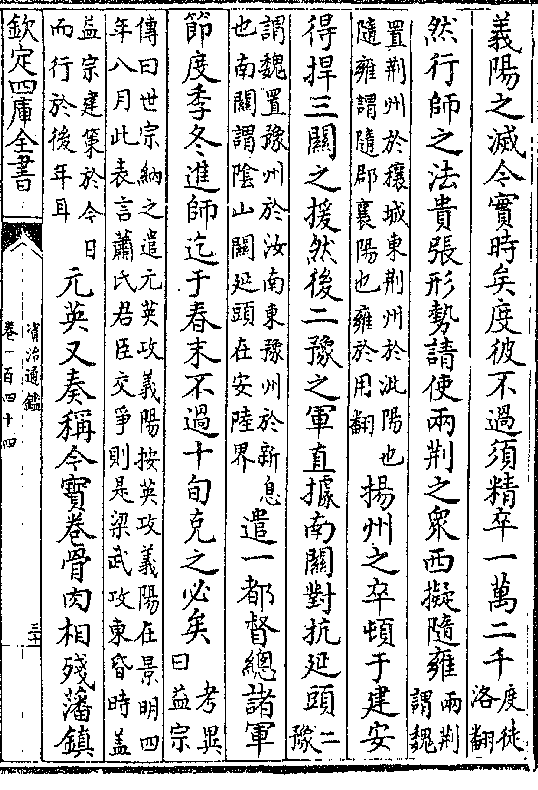 義陽之滅今實時矣度彼不過須精卒一萬二千度徒洛翻
然行師之法貴張形勢請使兩荆之衆西擬隨雍兩荆謂魏
置荆州於穰城東荆州於沘陽也隨雍謂隨郡襄陽也雍於用翻揚州之卒頓于建安
得捍三關之援然後二豫之軍直據南關對抗延頭二豫
謂魏置豫州於汝南東豫州於新息也南關謂陰山關延頭在安陸界遣一都督總諸軍
節度季冬進師迄于春末不過十旬克之必矣考異曰益宗
傳曰世宗納之遣元英攻義陽按英攻義陽在景明四年八月此表言蕭氏君臣交爭則是梁武攻東昏時蓋
益宗建策於今日而行於後年耳元英又奏稱今寶卷骨肉相殘藩鎮
欽定四庫全書
資治通鑑
卷一百四十四